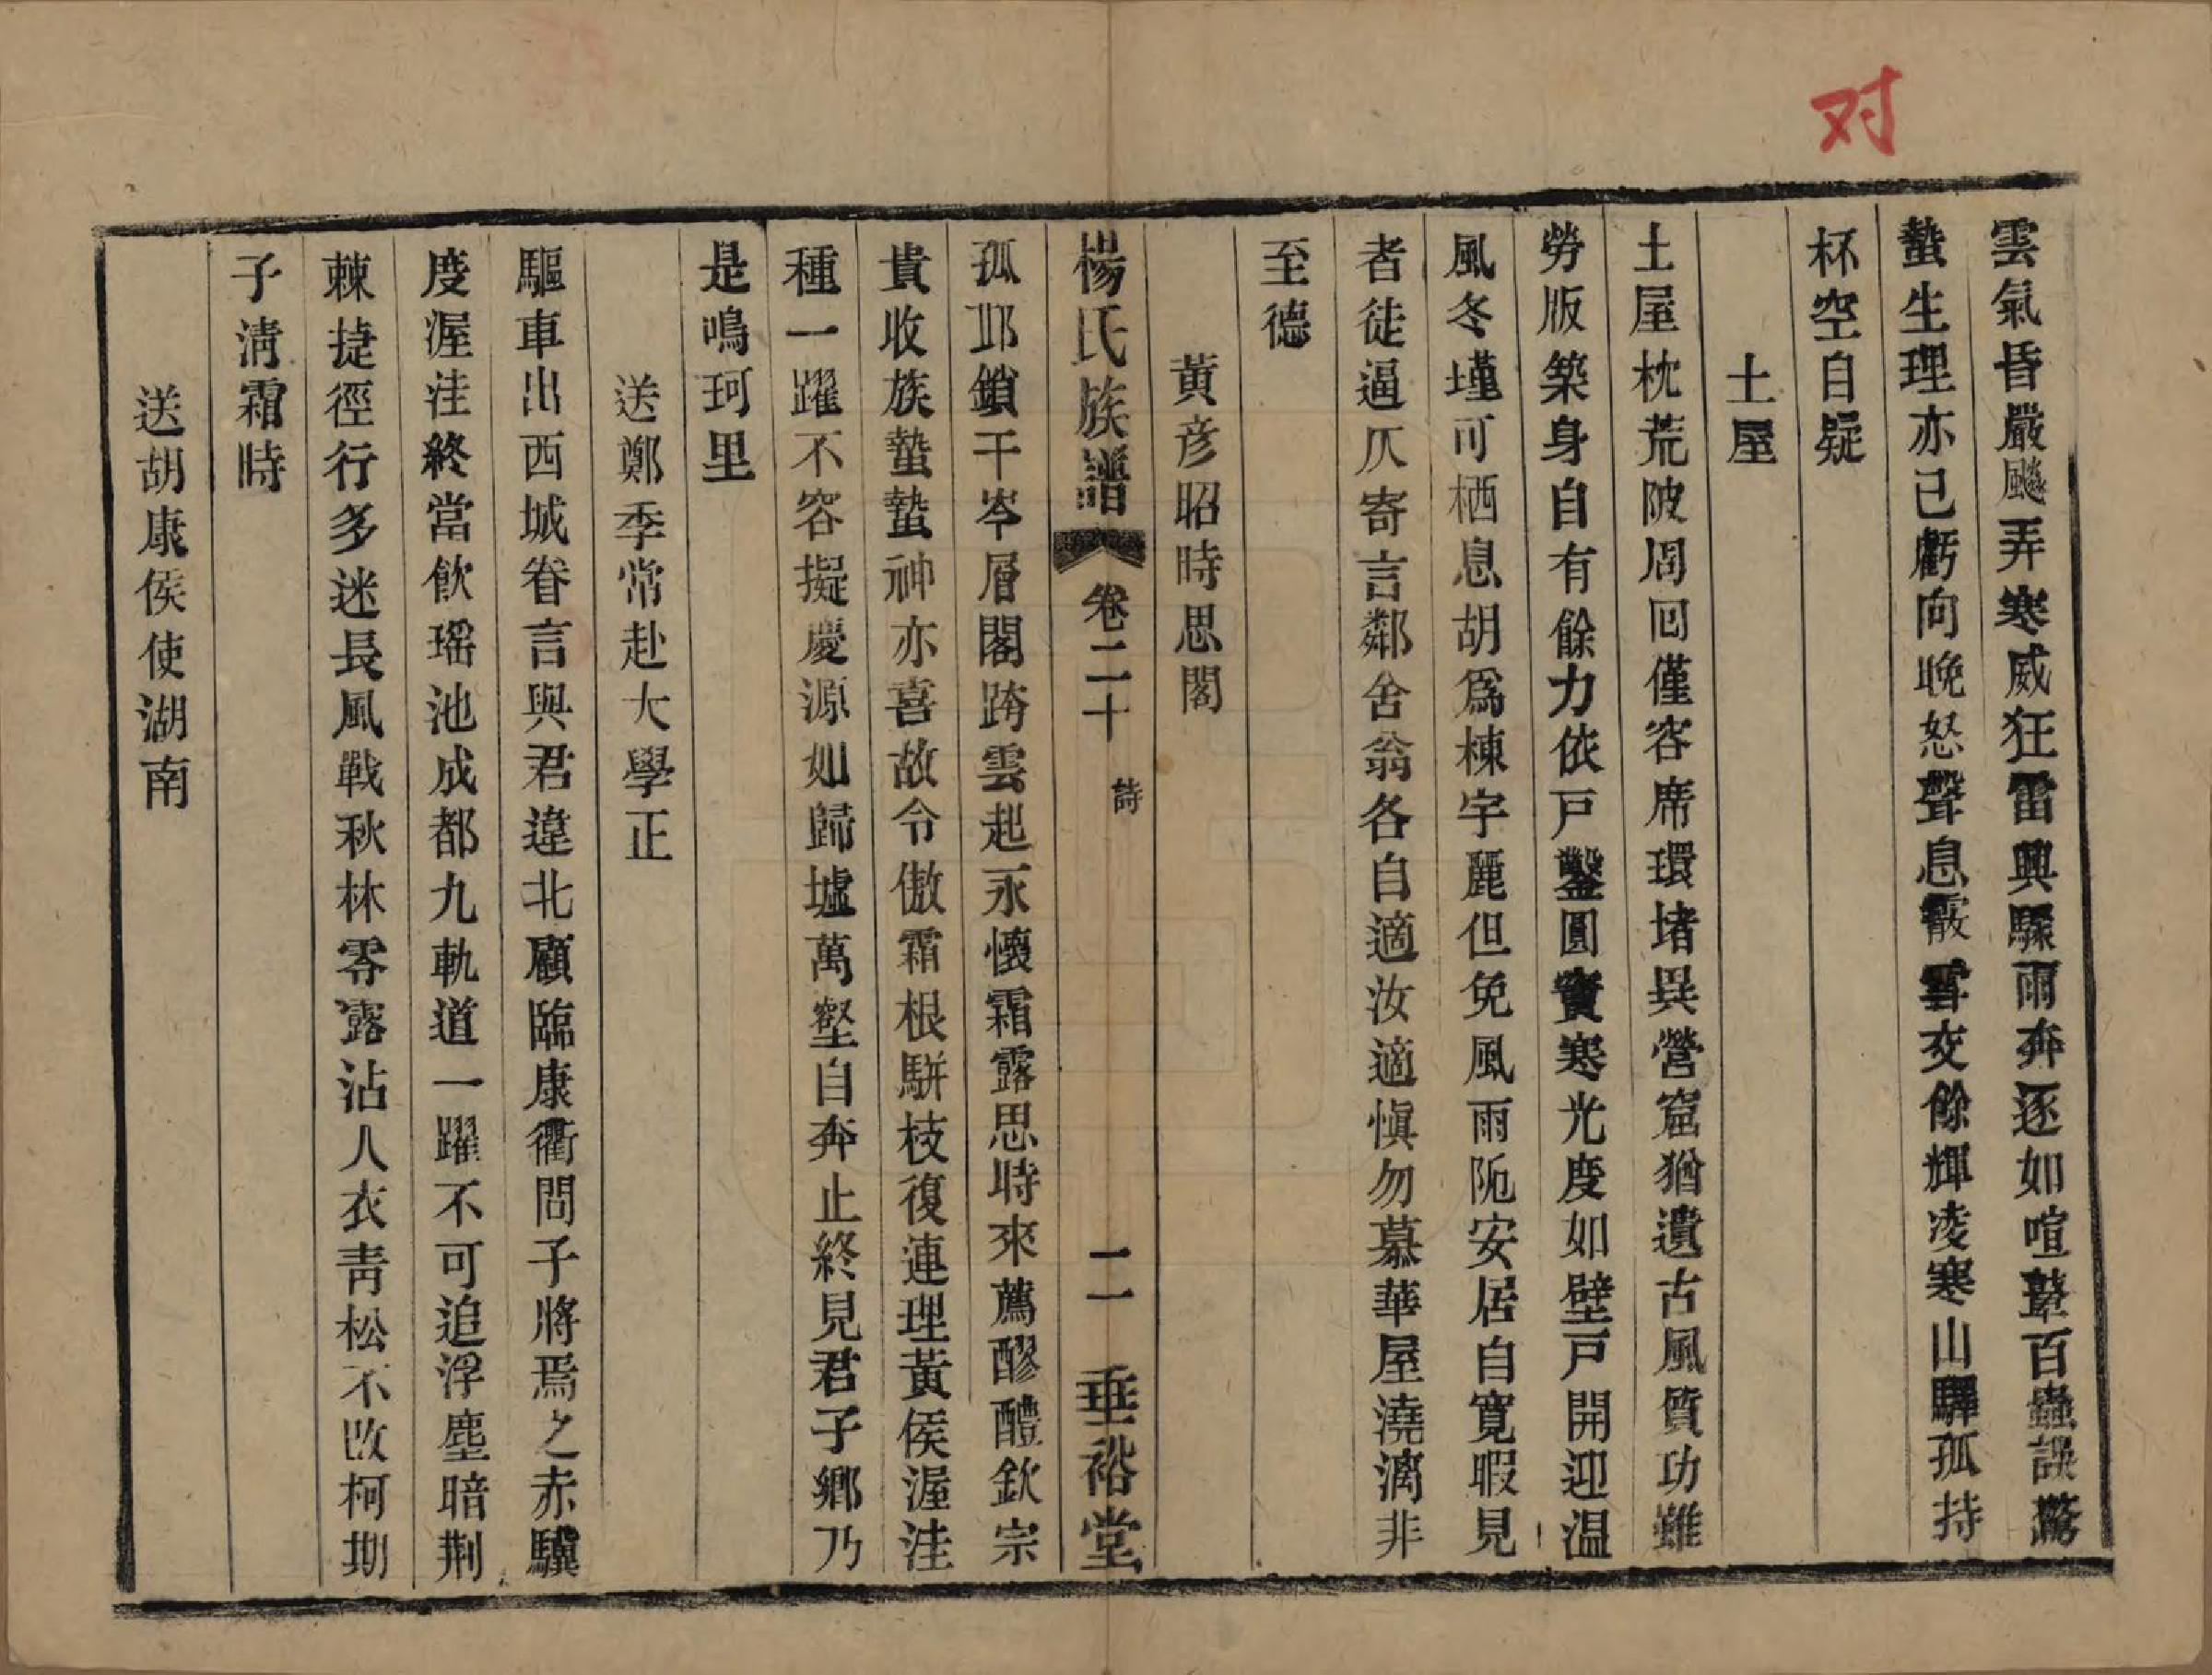 对
雲氣昏嚴飈弄寒威狂雷興驟雨奔逐如喧鼙百蟲誤驚
蟄生理亦已虧向晚怒聲息霰雪交餘輝凌寒山驛孤持
杯空自疑
土屋
土屋枕荒陂周回僅容席環堵異營窟猶遺古風質功雖
勞版築身自有餘力依戸鑿圓竇寒光度如壁戸開迎温
風冬墐可栖息胡爲棟宇麗但免風雨阨安居自寛暇見
者徒逼仄寄言鄰舍翁各自適汝適愼勿慕華屋澆漓非
至德
黃彦昭時思閣
楊氏族譜 卷二十 詩 二 垂裕堂
孤邛鎖干岑層閣跨雲起永懷霜露思時來薦醪醴欽宗
貴收族蟄蟄神亦喜故令傲霜根駢枝復連理黃侯渥洼
種一躍不容擬慶源如歸墟萬壑自奔止終見君子鄉乃
是鳴珂里
送鄭季常赴大學正
驅車出西城眷言與君違北顧臨康衢問子將焉之赤驥
度渥洼終當飲瑶池成都九軌道一躍不可追浮塵暗荆
棘捷徑行多迷長風戰秋林零露沾人衣靑松不改柯期
子淸霜時
送胡康侯使湖南